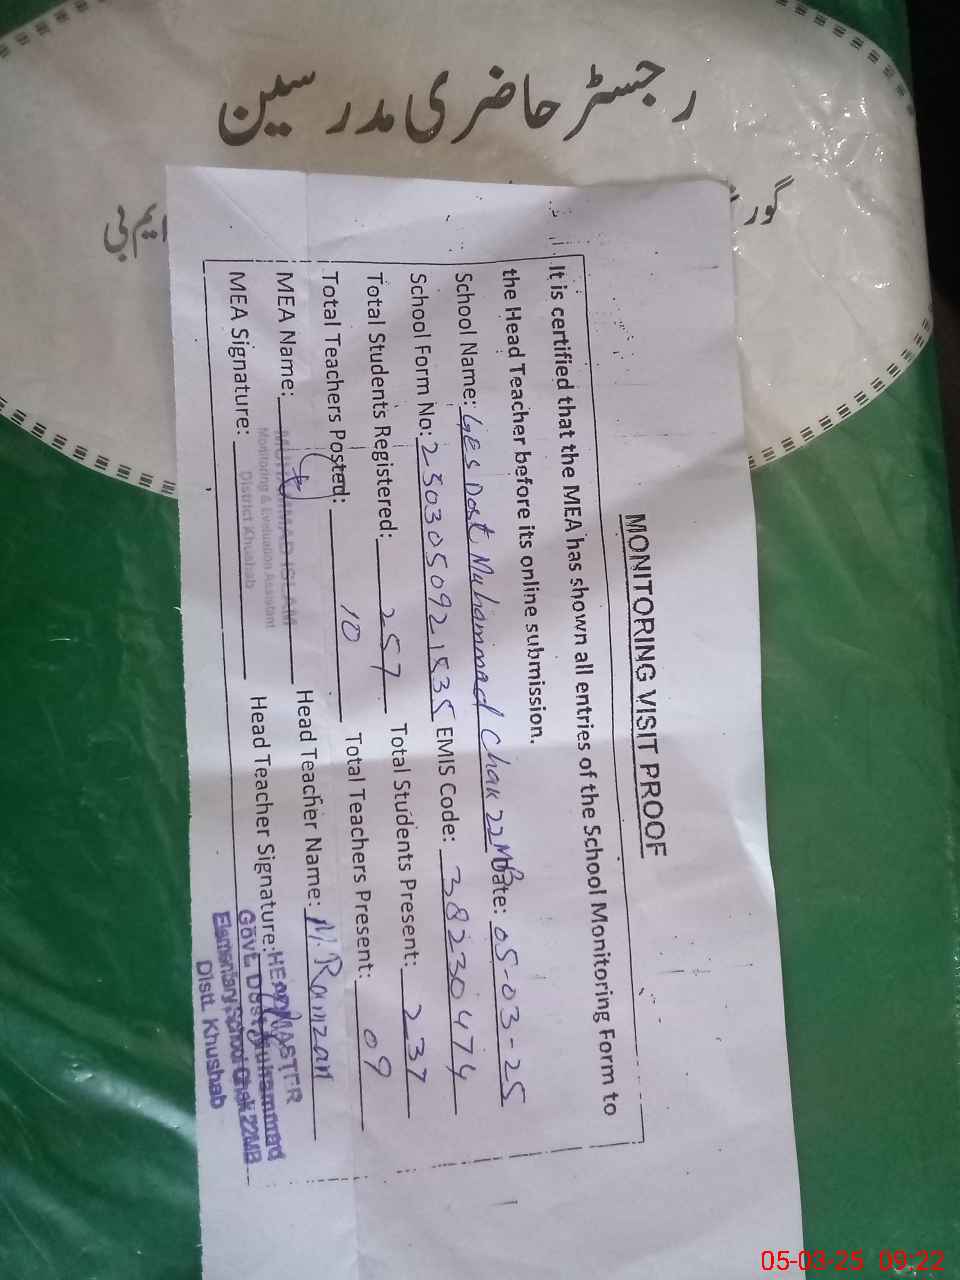 رجسٹر حاضری مدرسین
گور
ایم بی
MONITORING VISIT PROOF
It is certified that the MEA has shown all entries of the School Monitoring Form to
the Head Teacher before its online submission.
School Name: GES Dost Muhammad Chak 22MB Date: 05-03-25
School Form No: 2303050921535 EMIS Code: 38230474
Total Students Registered: 257 Total Students Present: 237
Total Teachers Posted: 10 Total Teachers Present: 09
MEA Name: MUHAMMAD ISLAM Head Teacher Name: M. Ramzan
Monitoring & Evaluation Assistant
District Khushab
MEA Signature: Head Teacher Signature:
HEADMASTER
Govt. Dost Muhammad
Elementary School Chak 22MB
Distt. Khushab
05-03-25 09:22